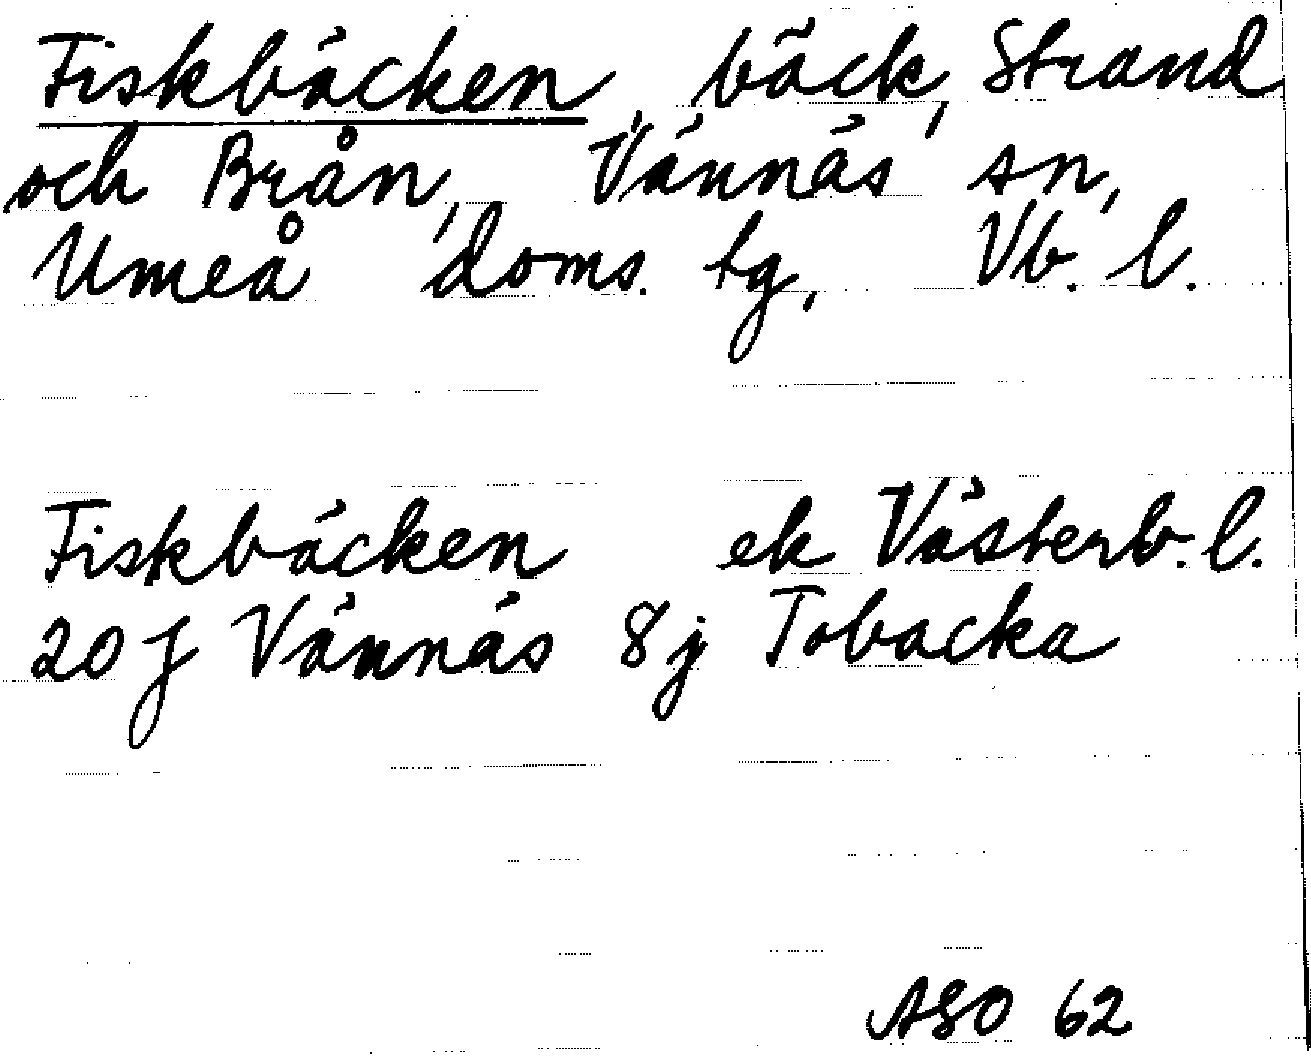 Fiskbäcken, bäck, Strand
och Brån, Vännäs sn,
Umeå doms. tg, Vb. l.
Fiskbäcken ek Västerb. l.
20 J Vännäs 8j Tobacka
ASO 62